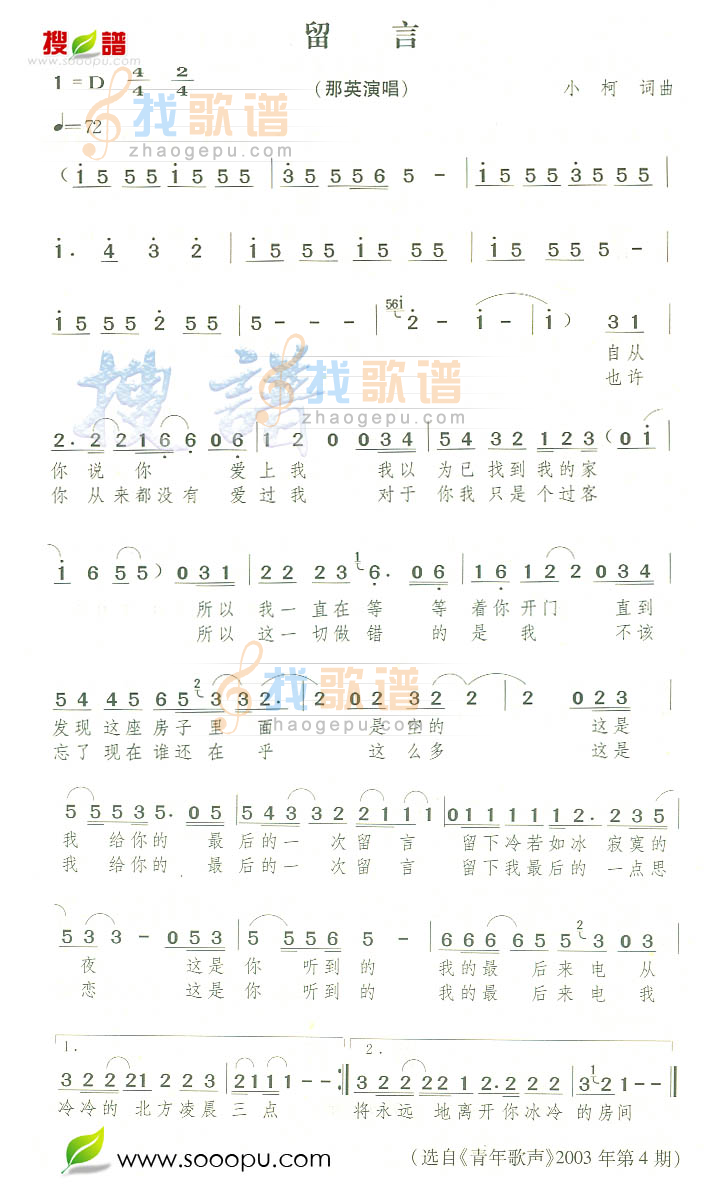 搜谱
www.sooopu.com
留 言
1 = D 4/4 2/4
(那英演唱)
小 柯 词曲
♩=72
找歌谱
zhaogepu.com
(i 5 55 i 5 55 | 3 5 55 6 5 - | i 5 55 3 5 55 |
i. 4 3 2 | i 5 55 i 5 55 | i 5 55 5 - |
i 5 55 2 55 | 5 - - - | 56i 2 - i - | i ) 31
自从
也许
搜谱
找歌谱
zhaogepu.com
2. 2 2 1 6 6 06 | 1 2 0 034 | 54 32 123 (0i |
你 说 你 爱 上 我 我 以 为 已 找 到 我 的 家
你 从 来 都 没 有 爱 过 我 对 于 你 我 只 是 个 过 客
i 6 55 ) 031 | 22 23 1 6. 06 | 16 122 034 |
所 以 我 一 直 在 等 等 着 你 开 门 直 到
所 以 这 一 切 做 错 的 是 我 不 该
找歌谱
zhaogepu.com
54 45 65 2 33 32. | 2 02 32 2 | 2 023 |
发 现 这 座 房 子 里 面 是 空 的 这 是
忘 了 现 在 谁 还 在 乎 这 么 多 这 是
5 5535. 05 | 5433 22111 | 0111112. 235 |
我 给 你 的 最 后 的 一 次 留 言 留 下 冷 若 如 冰 寂 寞 的
我 给 你 的 最 后 的 一 次 留 言 留 下 我 最 后 的 一 点 思
53 3 - 053 | 5 556 5 - | 666 65 5 2 3 03 |
夜 这 是 你 听 到 的 我 的 最 后 来 电 从
恋 这 是 你 听 到 的 我 的 最 后 来 电 我
1.
2.
32221 223 | 2111 - - :| 322 2221 2.222 | 3 1 21 - - ||
冷 冷 的 北 方 凌 晨 三 点 将 永 远 地 离 开 你 冰 冷 的 房 间
www.sooopu.com
(选自《青年歌声》2003 年第 4 期)